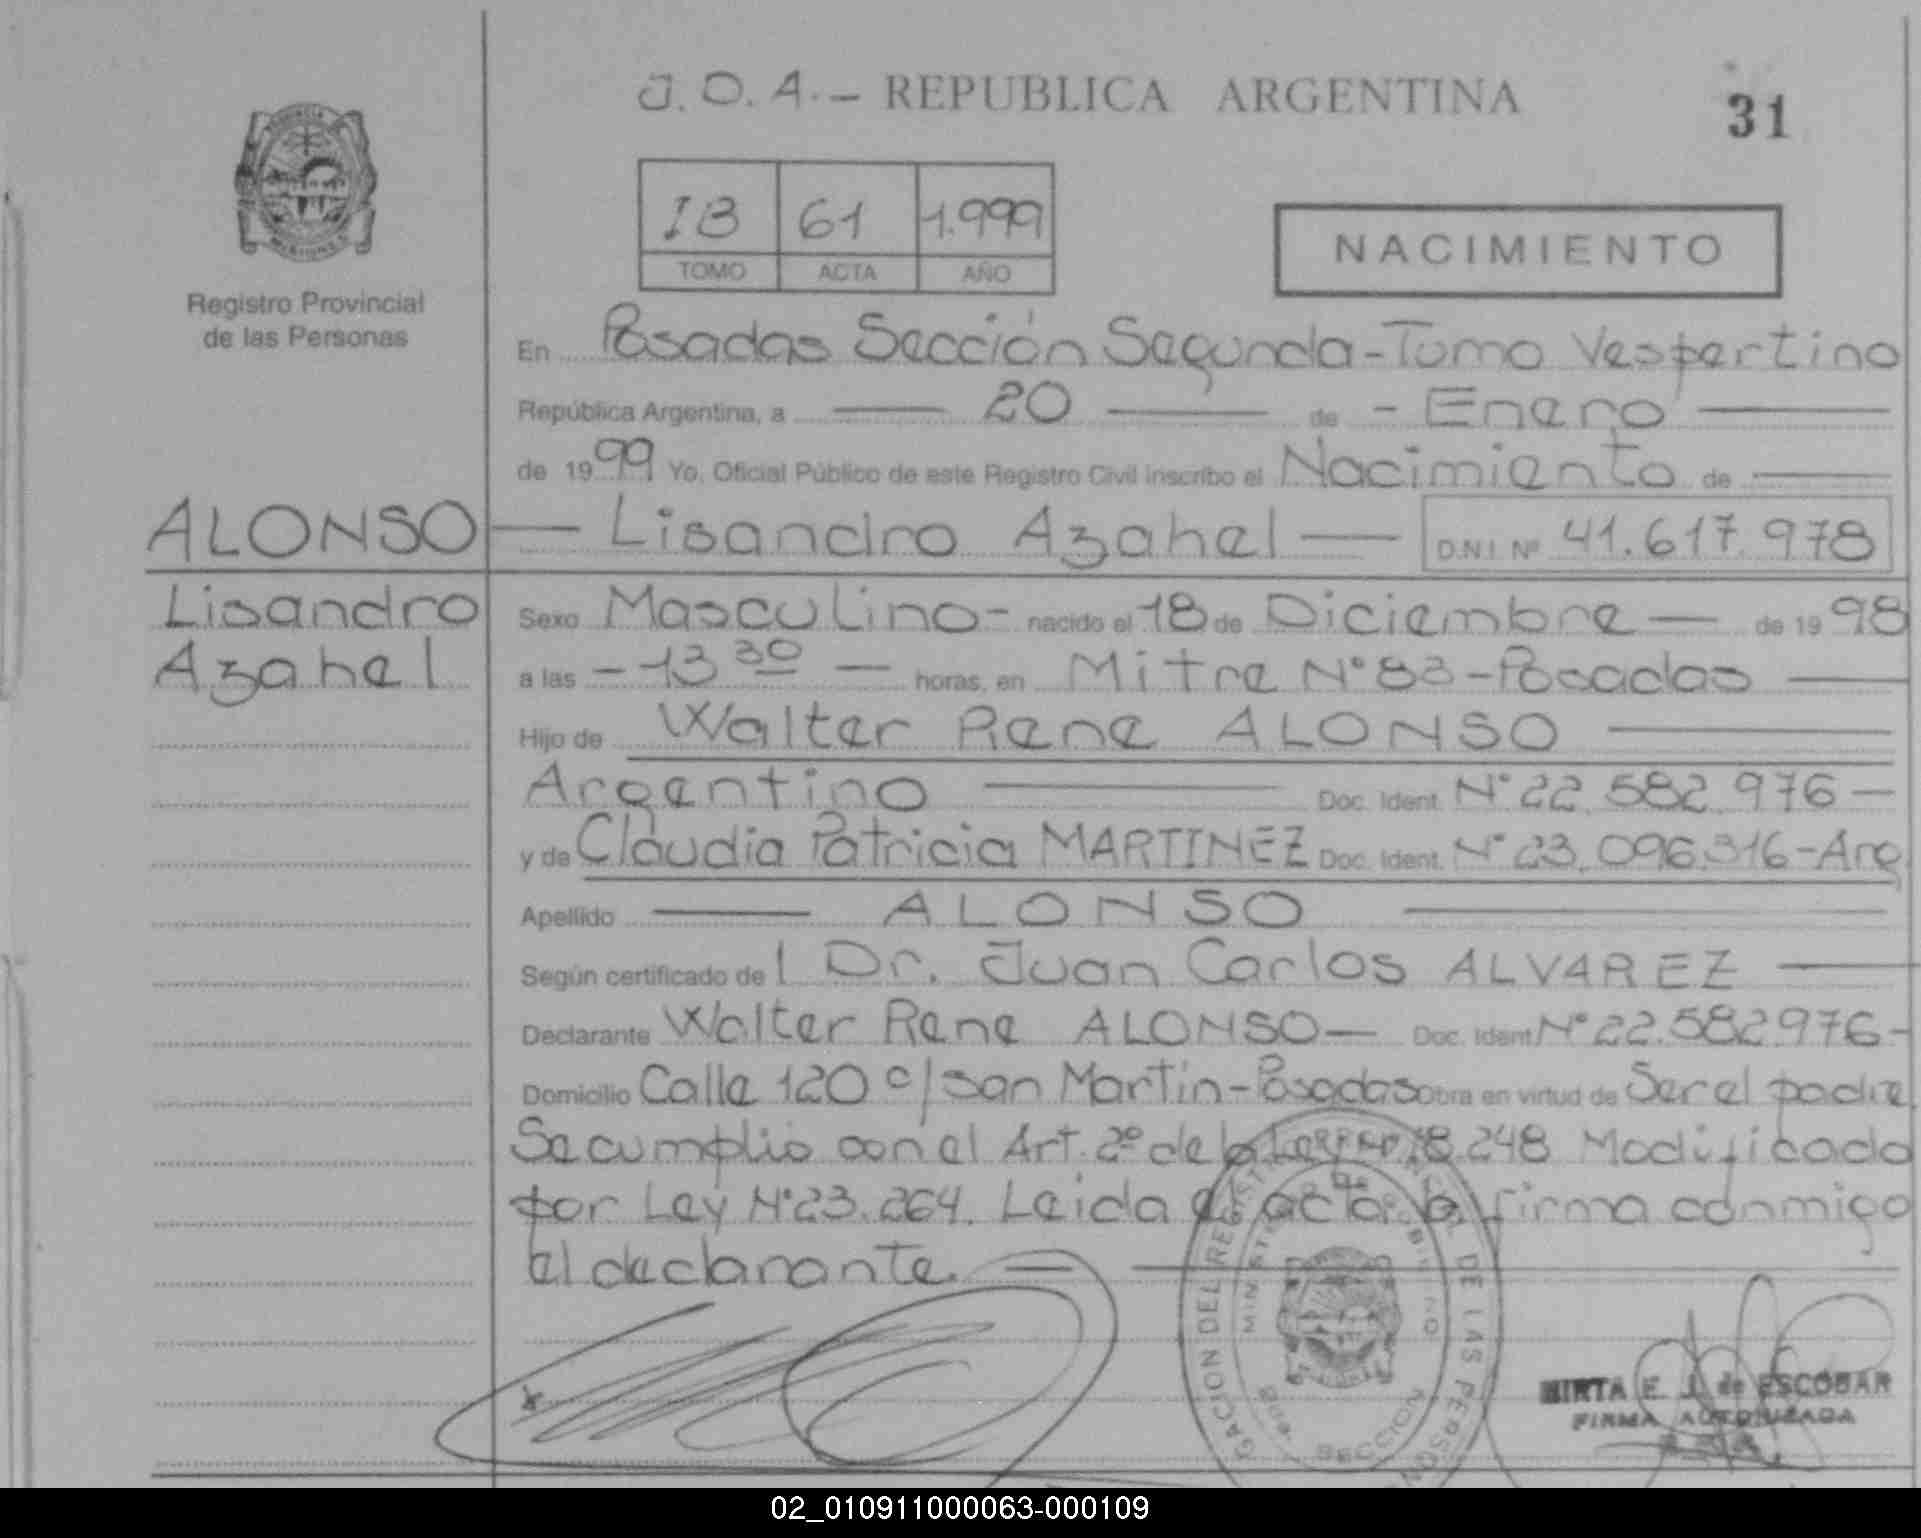 J.O.A.- REPUBLICA ARGENTINA
31
IB 61 1.999
TOMO ACTA AÑO
NACIMIENTO
Registro Provincial
de las Personas
En Posadas Sección Segunda-Turno Vespertino
República Argentina, a 20 de - Enero
de 1999 Yo, Oficial Público de este Registro Civil inscribo el Nacimiento de
ALONSO — Lisandro Azahel — D.N.I. Nº 41.617.978
Lisandro
Azahel
Sexo Masculino - nacido el 18 de Diciembre — de 1998
a las - 13 30 — horas, en Mitre Nº 83-Posadas
Hijo de Walter Rene ALONSO
Argentino Doc. Ident. Nº 22.582.976 —
y de Claudia Patricia MARTINEZ Doc. Ident. Nº 23.096.316-Arg
Apellido — ALONSO
Según certificado de l Dr. Juan Carlos ALVAREZ
Declarante Walter Rene ALONSO — Doc. Ident Nº 22.582.976-
Domicilio Calle 120 c/ San Martin-Posadas Obra en virtud de Ser el padre
Se cumplio con el Art. 2º de la Ley Nº 18.248 Modificado
por Ley Nº 23.264. Leida el acta la firma conmigo
el declarante. —
GACION DEL REGISTRO DE LAS PERSON
MINISTERIO DE GOBIERNO
SECCION
MIRTA E. J. de ESCOBAR
FIRMA AUTORIZADA
02_010911000063-000109